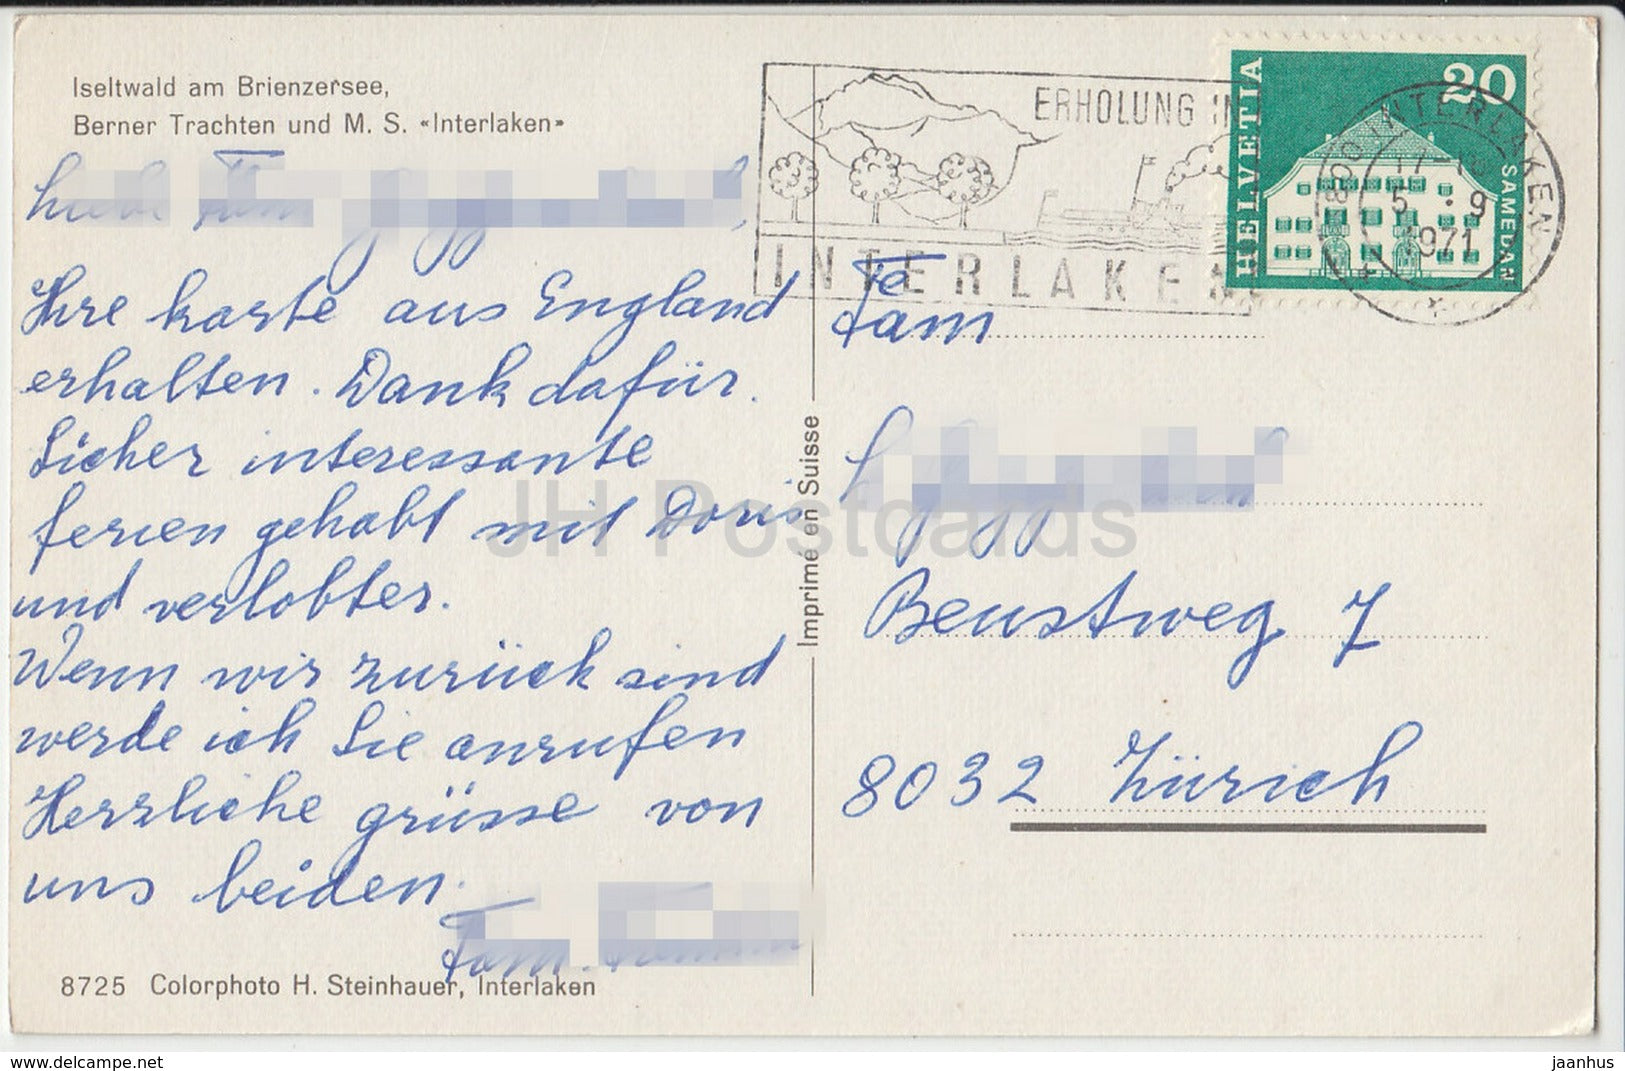 Iseltwald am Brienzersee,
Berner Trachten und M. S. «Interlaken»
Ihre karte aus England
erhalten. Dank dafür.
Sicher interessante
ferien gehabt mit Doris
und verlobter.
Wenn wir zurück sind
werde ich Sie anrufen
Herzliche grüsse von
uns beiden.
Fam.
8725 Colorphoto H. Steinhauer, Interlaken
Imprimé en Suisse
ERHOLUNG IN
INTERLAKEN
HELVETIA
20
SAMEDAN
3800 INTERLAKEN
5.-9
1971
Fam
Beustweg 7
8032 Zürich
JH Postcards
www.delcampe.net
jaanhus